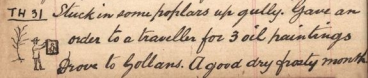 TH 31 Stuck in some poplars up gully. Gave an
order to a traveller for 3 oil paintings
Drove to Gollans. A good dry frosty month